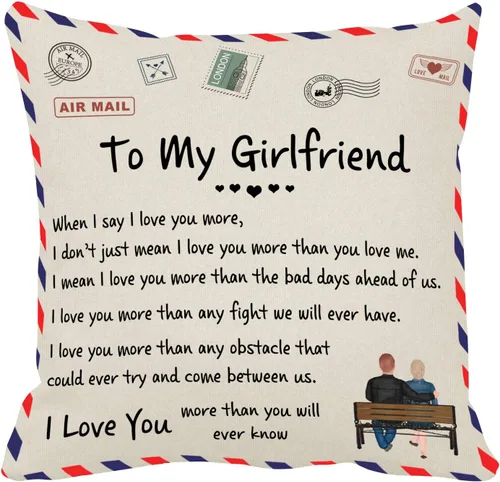 AIR MAIL
EUROPE
LONDON
LONDON LONDON
LOVE MAIL
AIR MAIL
To My Girlfriend
When I say I love you more,
I don't just mean I love you more than you love me.
I mean I love you more than the bad days ahead of us.
I love you more than any fight we will ever have.
I love you more than any obstacle that
could ever try and come between us.
I Love You more than you will
ever know